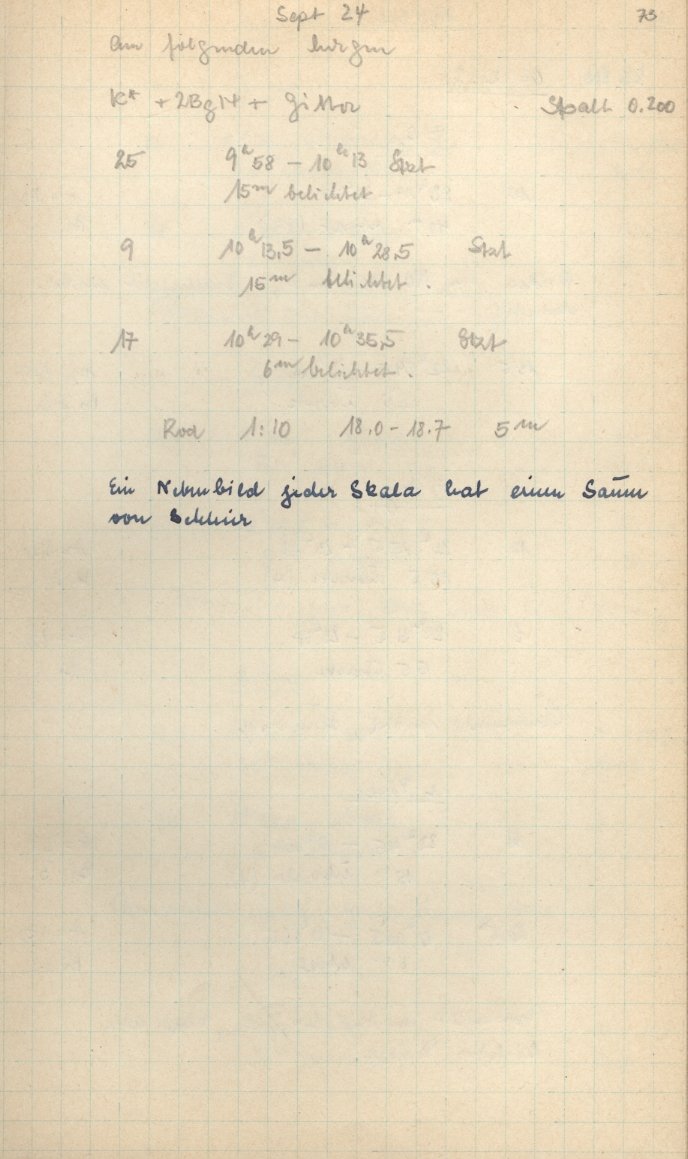 Sept 24 73
Am folgenden Morgen
K* + 2BgN + Gitter Spalt 0.200
25 9h 58 – 10h 13 Skt
15m belichtet
9 10h 13,5 – 10h 28,5 Skt
15m belichtet .
17 10h 29 – 10h 35,5 Skt
6m belichtet .
Rod 1:10 18.0 – 18.7 5m
Ein Nebenbild jeder Skala hat einen Saum
von Schleier